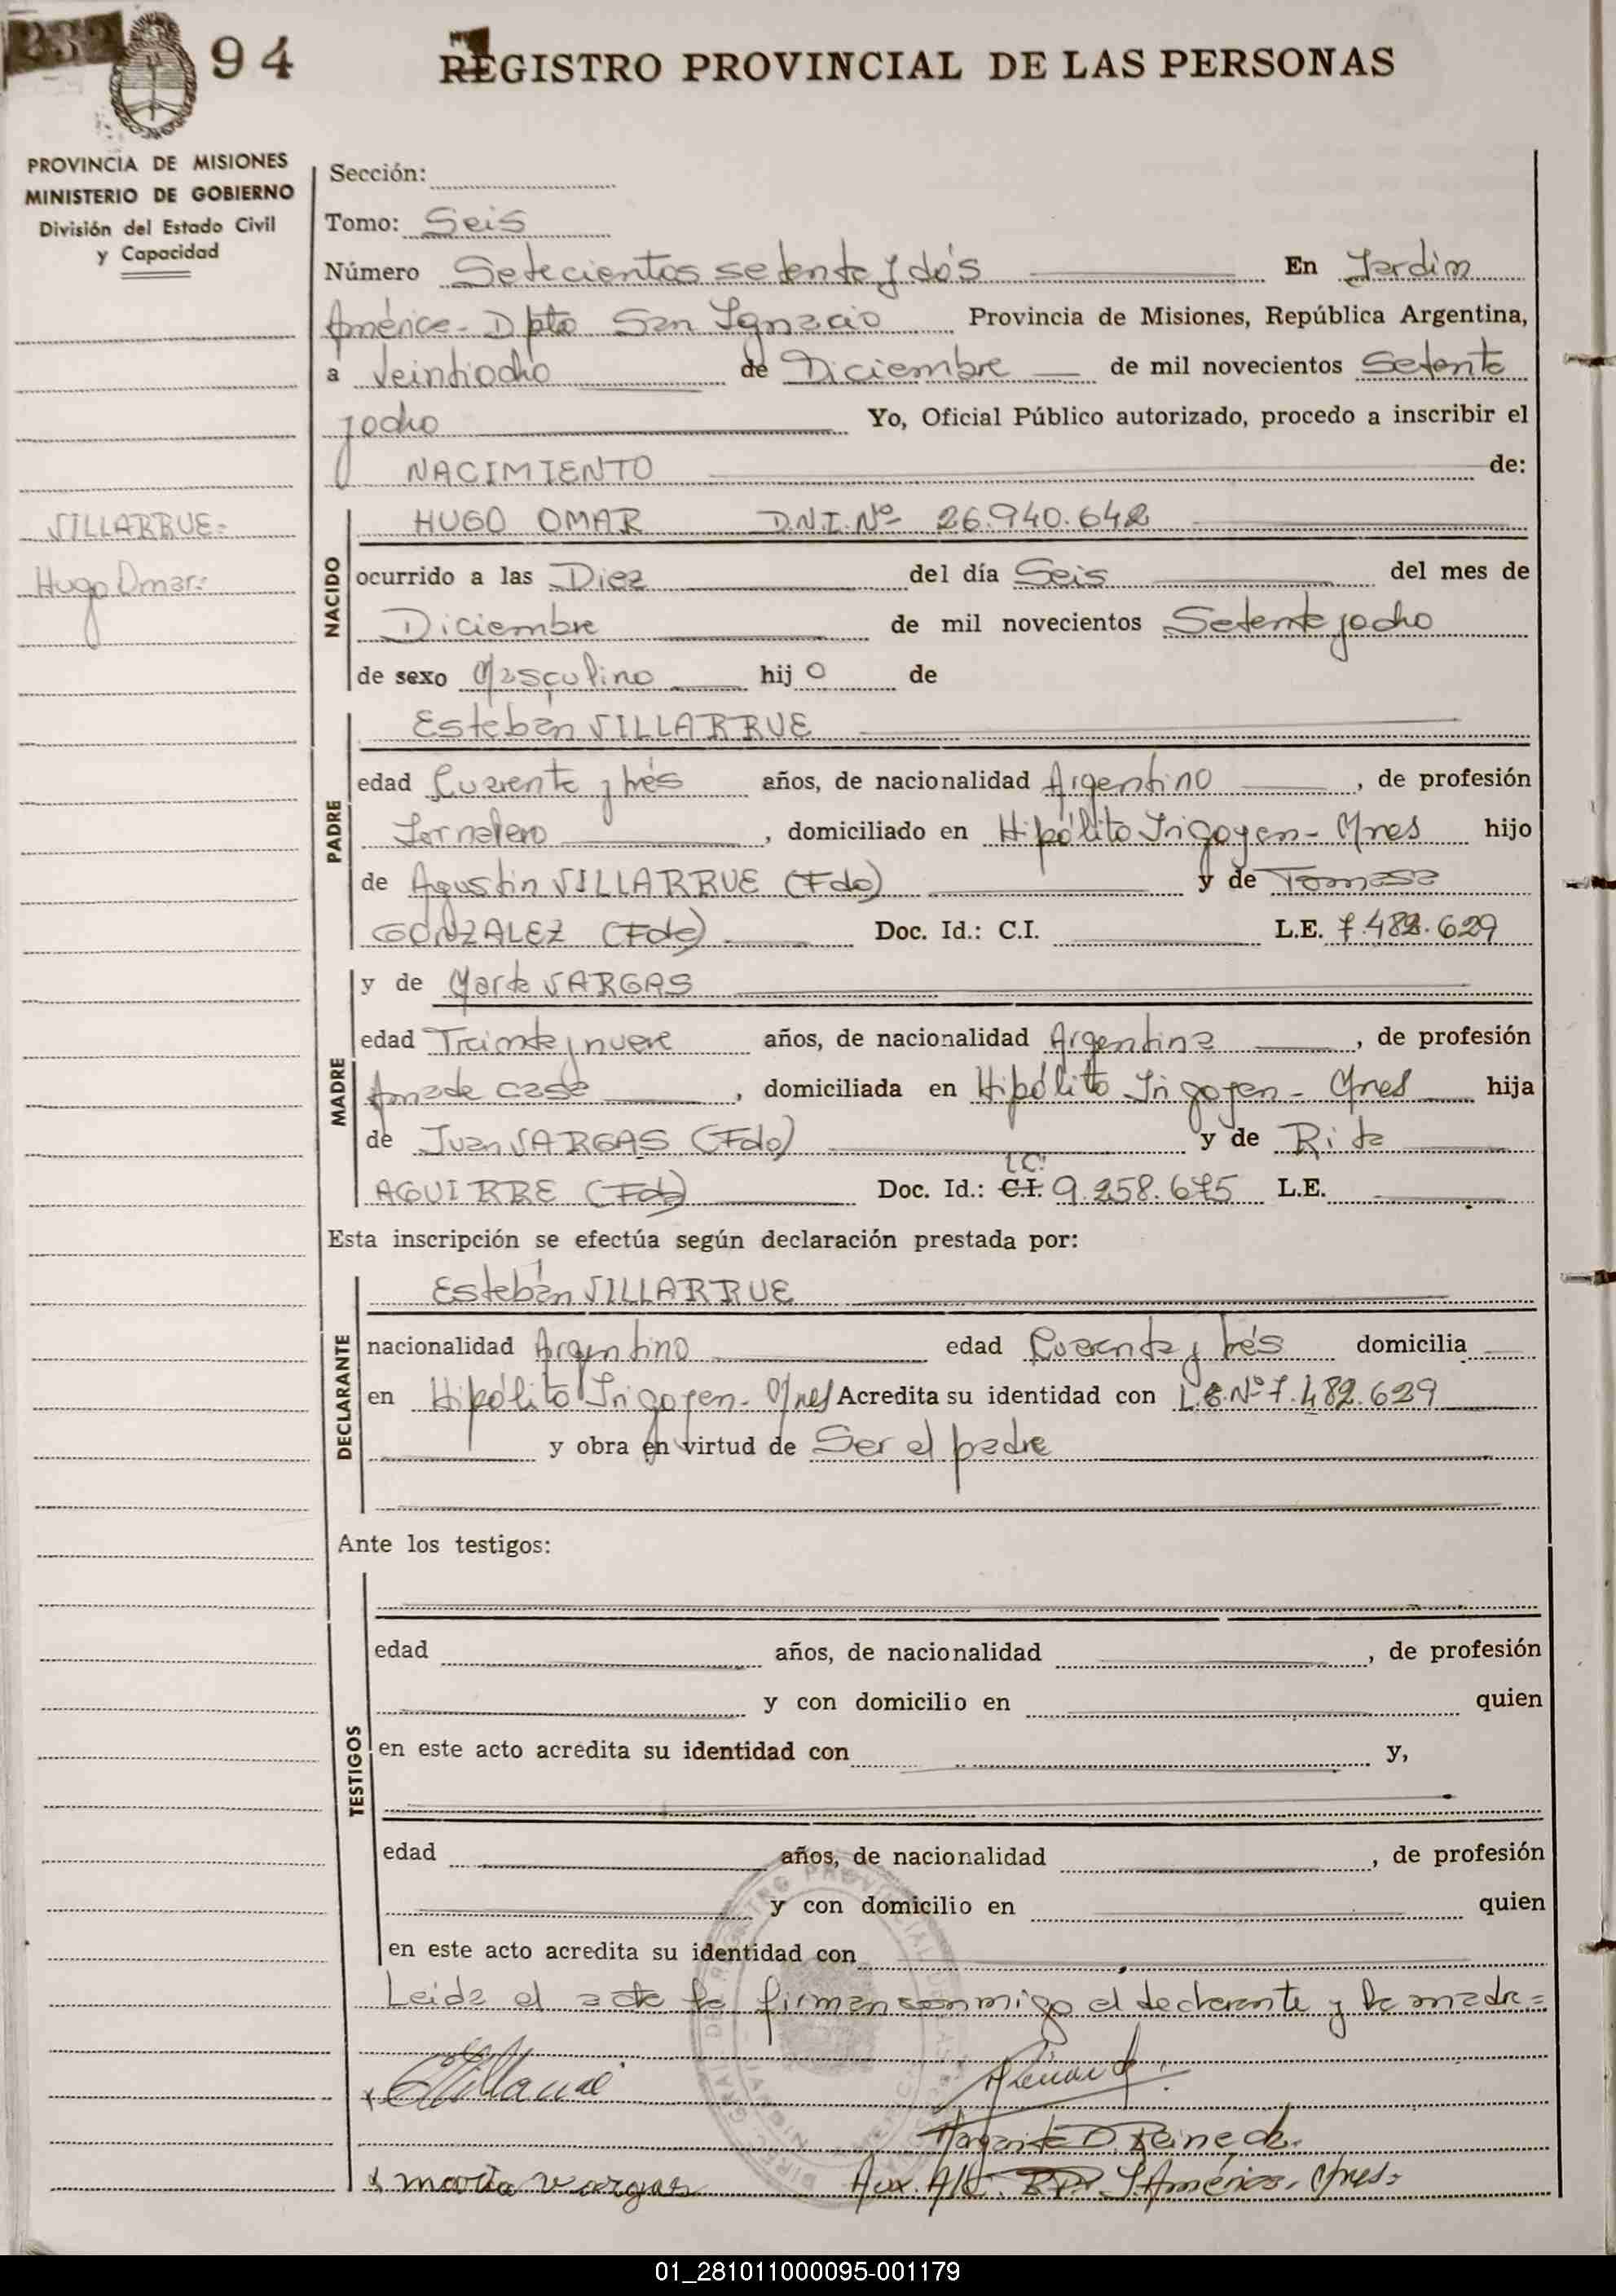 94
REGISTRO PROVINCIAL DE LAS PERSONAS
PROVINCIA DE MISIONES
MINISTERIO DE GOBIERNO
División del Estado Civil
y Capacidad
Sección:
Tomo: Seis
Número Setecientos setenta y dós En Jardin
América - Dpto San Ignacio Provincia de Misiones, República Argentina,
a Veintiocho de Diciembre de mil novecientos Setenta
y ocho Yo, Oficial Público autorizado, procedo a inscribir el
NACIMIENTO de:
VILLARRUE=
Hugo Omar=
NACIDO
HUGO OMAR D.N.I. Nº 26.940.642
ocurrido a las Diez del día Seis del mes de
Diciembre de mil novecientos Setenta y ocho
de sexo Masculino hij o de
PADRE
Estebán VILLARRUE
edad Cuarenta y trés años, de nacionalidad Argentino, de profesión
Jornalero, domiciliado en Hipólito Irigoyen - Mnes hijo
de Agustin VILLARRUE (Fdo) y de Tomasa
GONZALEZ (Fda) Doc. Id.: C.I. L.E. 7.482.629
MADRE
y de Marta VARGAS
edad Treinta y nueve años, de nacionalidad Argentina, de profesión
Ama de casa, domiciliada en Hipólito Irigoyen - Mnes hija
de Juan VARGAS (Fdo) y de Rita
L.C.
AGUIRRE (Fda) Doc. Id.: C.I. 9.258.675 L.E.
Esta inscripción se efectúa según declaración prestada por:
DECLARANTE
Estebán VILLARRUE
nacionalidad Argentino edad Cuarenta y trés domicilia
en Hipólito Irigoyen - Mnes Acredita su identidad con L.E. Nº 7.482.629
y obra en virtud de Ser el padre
Ante los testigos:
TESTIGOS
edad años, de nacionalidad , de profesión
y con domicilio en quien
en este acto acredita su identidad con y,
edad años, de nacionalidad , de profesión
y con domicilio en quien
en este acto acredita su identidad con
Leida el acta la firman conmigo el declarante y la madre=
x maria vargas
01_281011000095-001179